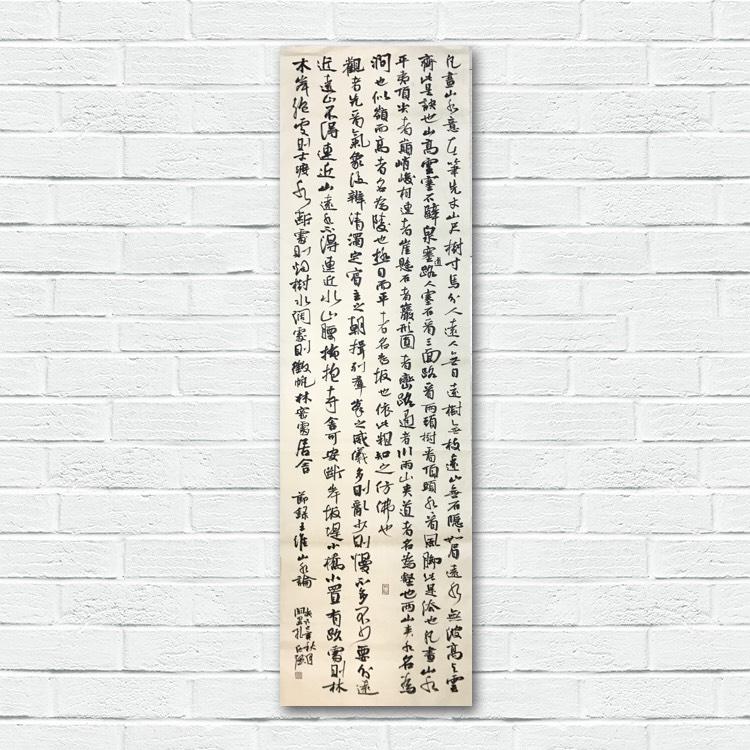 凡畫山水意在筆先丈山尺樹寸馬分人遠人無目遠樹無枝遠山無石隱〻如眉遠水無波高與雲
齊此是訣也山高雲塞石壁泉塞道路人塞石看三面路看兩頭樹看頂頭水看風脚此是法也凡畫山水
平夷頂尖者巔峭峻相連者崖懸石者巖形圓者巒路通者川兩山夾道者名為壑也兩山夾水名為
澗也似嶺而高者名為陵也極目而平者名為坂也依此粗知之仿佛也
觀者先看氣象後辨清濁定賓主之朝揖列羣峯之威儀多則亂少則慢不多不少要分遠
近遠山不得連近山遠水不得連近水山腰掩抱寺舍可安斷岸坂堤小橋小置有路處則林
木岸絕處則古渡水斷處則烟樹水闊處則徵帆林密處居舍 節錄王維山水論
年秋月